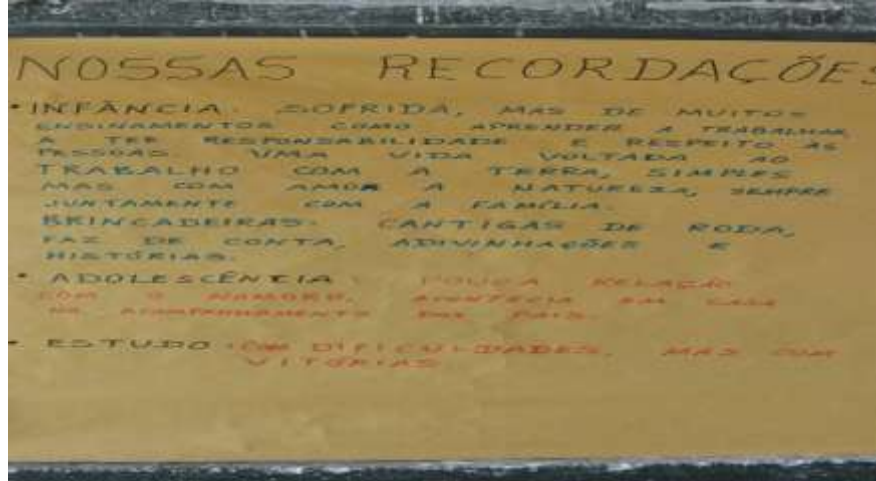 NOSSAS RECORDAÇÕES
• INFÂNCIA: SOFRIDA, MAS DE MUITOS
ENSINAMENTOS COMO APRENDER A TRABALHAR,
A TER RESPONSABILIDADE E RESPEITO ÀS
PESSOAS. UMA VIDA VOLTADA AO
TRABALHO COM A TERRA, SIMPLES
MAS COM AMOR A NATUREZA, SEMPRE
JUNTAMENTE COM A FAMÍLIA.
BRINCADEIRAS: CANTIGAS DE RODA,
FAZ DE CONTA, ADIVINHAÇÕES E
HISTÓRIAS.
• ADOLESCÊNCIA: POUCA RELAÇÃO
COM O NAMORO, ACONTECIA EM CASA
NO ACOMPANHAMENTO DOS PAIS.
• ESTUDO: COM DIFICULDADES, MAS COM
VITÓRIAS